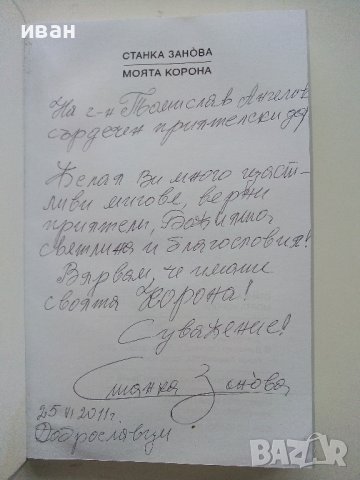 иван
СТАНКА ЗАНОВА
МОЯТА КОРОНА
На г-н Ангелов
сърдечен приятелски дар
Желая Ви много щаст-
ливи мигове, верни
приятели, Божията
светлина и благословия!
Вярвам, че имаш
своята Корона!
С уважение!
Станка Занова
25 VI 2011 г.
Доброславци
BAZAR
bg